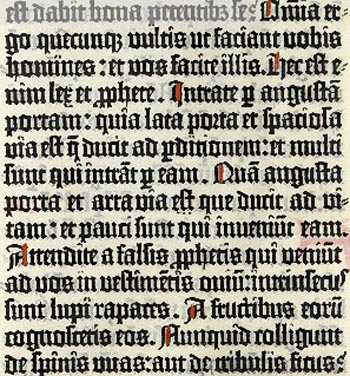 est dabit bona petentibꝫ se? Omnia er-
go quecunqꝫ vultis ut faciant vobis
homines: et vos facite illis. Hec est e-
nim lex et ꝓphete. Intrate ꝑ angustā
portam: quia lata porta et spaciosa
via est q̄ ducit ad ꝑditionem: et multi
sunt qui intrāt ꝑ eam. Quā angusta
porta et arta via est que ducit ad vi-
tam: et pauci sunt qui inveniūt eam.
Attendite a falsis ꝓphetis qui veniūt
ad vos in vestimētis oviū: intrinsecus
sunt lupi rapaces. A fructibus eorū
cognoscetis eos. Nunquid colligunt
de spinis uvas: aut de tribulis ficus?